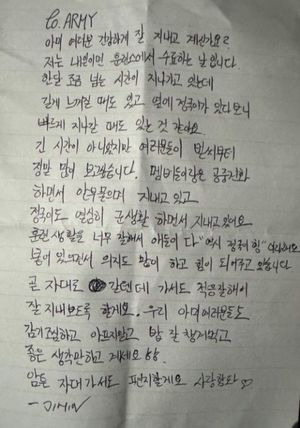 To. ARMY
아미 여러분 건강하게 잘 지내고 계신가요?
저는 내일이면 훈련소에서 수료하는 날 입니다.
한달 조금 넘는 시간이 지나가고 있는데
길게 느껴질 때도 있고 옆에 정국이가 있다보니
빠르게 지나간 때도 있는 것 같아요.
긴 시간이 아니었지만 여러분들이 벌써부터
정말 많이 보고싶습니다. 멤버들이랑은 공중전화
하면서 안부 물으며 지내고 있고
정국이도 열심히 군생활 하면서 지내고 있어요
훈련 생활을 너무 잘해서 애들이 다 "역시 정국이 형"
같이 있으면서 의지도 많이 하고 힘이 되어주고 있습니다
곧 자대도 갈텐데 가서도 적응 잘해서
잘 지내보도록 할게요. 우리 아미여러분들도
감기 조심하고 아프지말고 밥 잘 챙겨먹고
좋은 생각만하고 계세요 ㅎㅎ
암튼 자대가서도 편지할게요 사랑합니다 ♡
- JIMIN